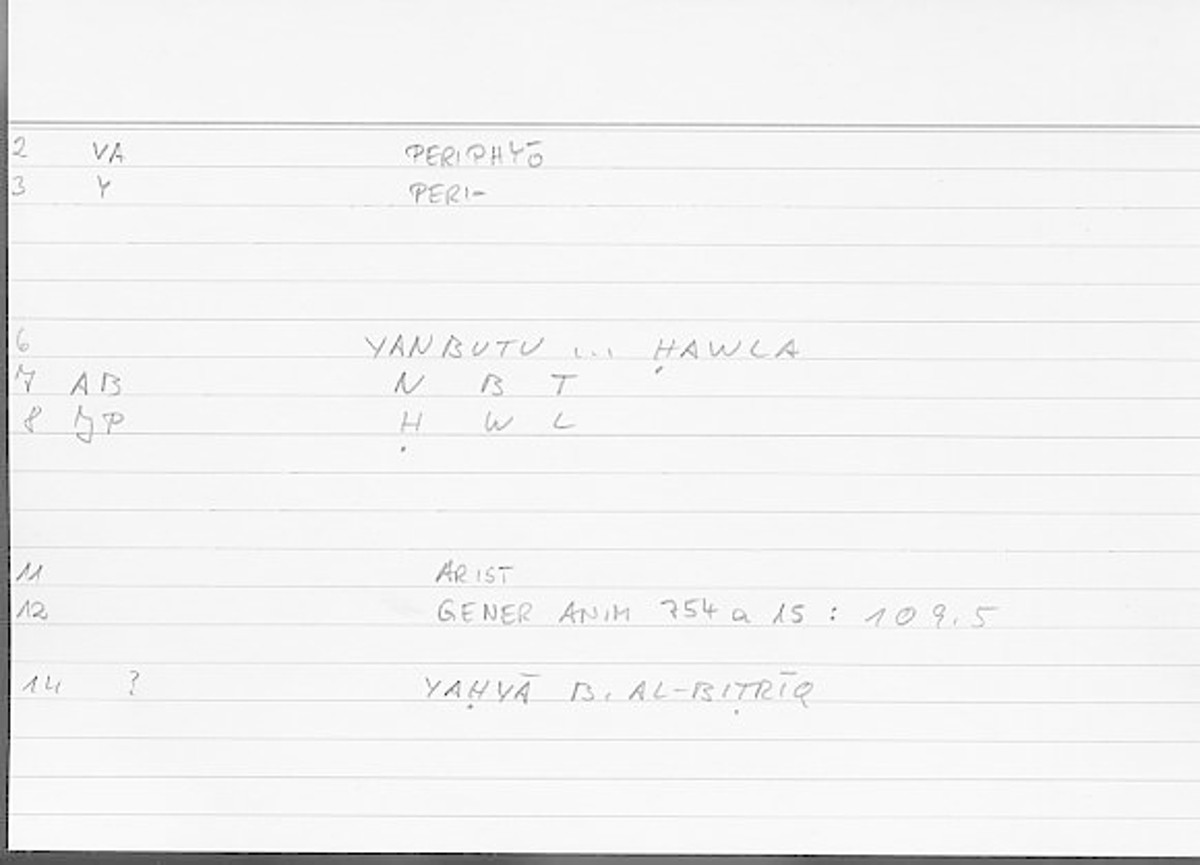 2 VA PERIPHYŌ
3 Y PERI-
6 YANBUTU ... ḤAWLA
7 AB N B T
8 JP Ḥ W L
11 ARIST
12 GENER ANIM 754 a 15 : 109.5
14 ? YAḤYĀ B. AL-BIṬRĪQ